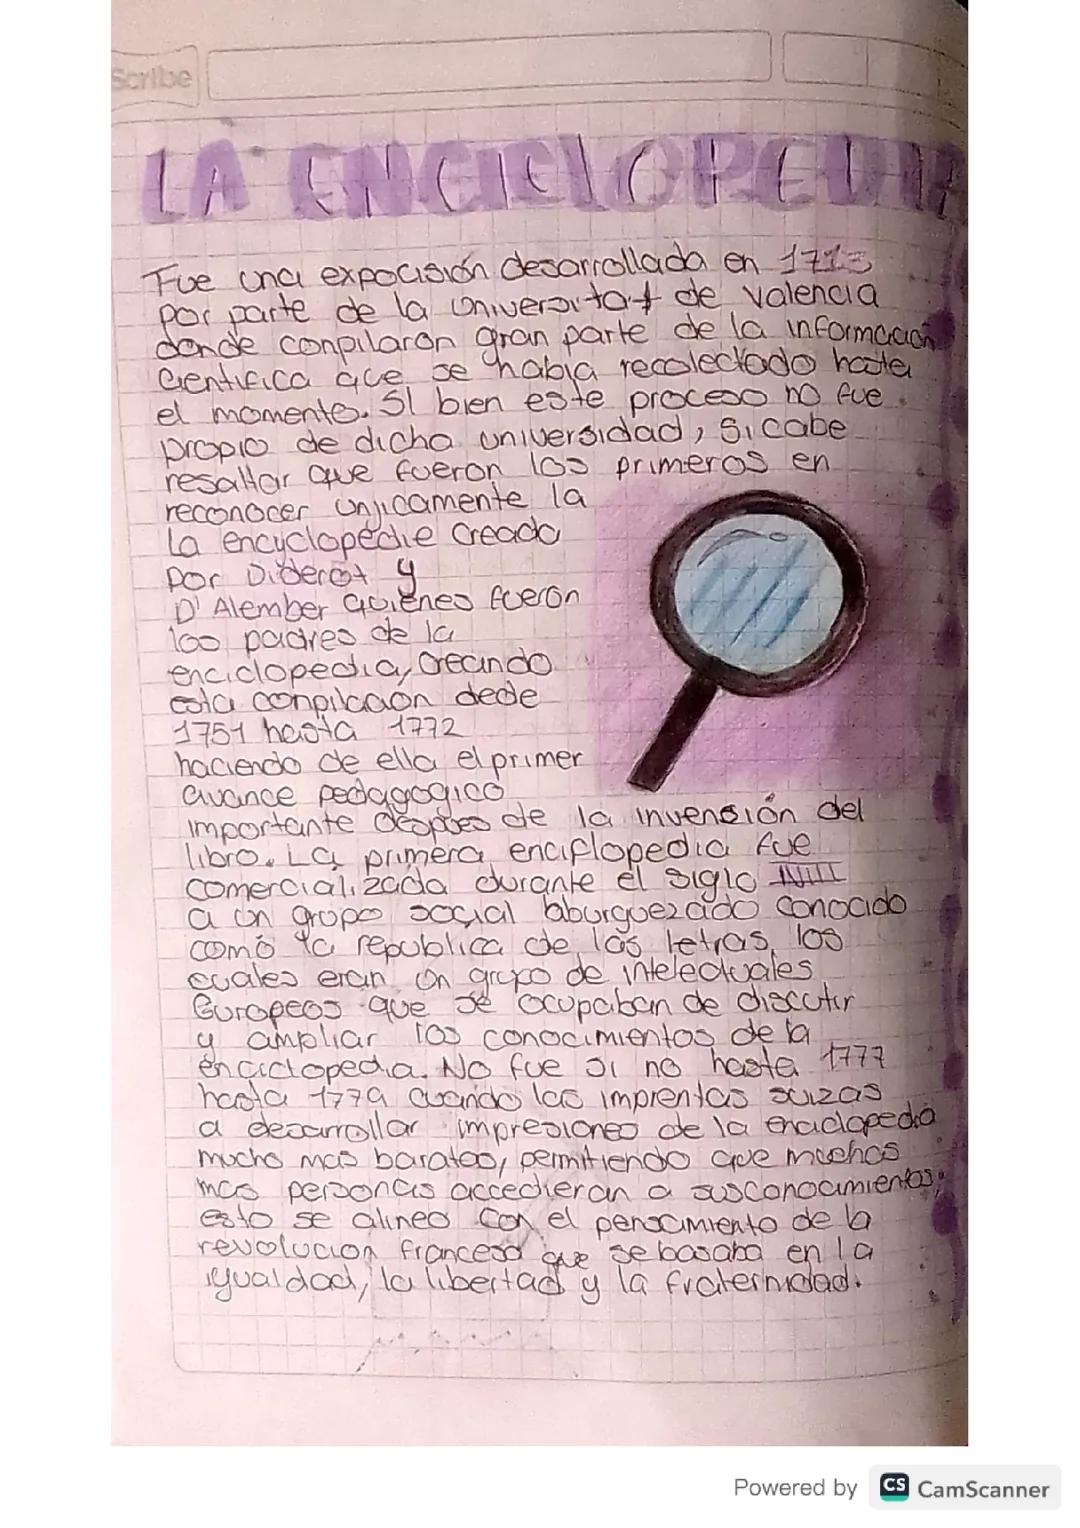 Scribe
LA ENCICLOPEDIA
Fue una expocisión desarrollada en 1713
por parte de la Universitat de valencia
donde conpilaron gran parte de la informacion
cientifica que se habia recolectado hasta
el momento. SI bien este proceso no fue
propio de dicha universidad, si cabe
resaltar que fueron los primeros en
reconocer unjicamente la
la encyclopédie creado
por Diderot y
D'Alember quienes fueron
los padres de la
enciclopedia, creando
esta conpilcaón dede
1751 hasta 1772
haciendo de ella el primer
avance pedagogico
importante despues de la invensión del
libro. La primera enciflopedia fue
comercializada durante el siglo
a un grupo social aburguezado conocido
como la republica de las letras, los
cuales eran un grupo de intelectuales
Europeos que se ocupaban de discutir
y ampliar los conocimientos de la
enciclopedia. No fue si no hasta 1777
hasta 1779 cuando las imprentas suizas
a desarrollar impresiones de la enciclopedia
mucho mas baratas, permitiendo que muchas
mas personas accedieran a susconocimientos,
esto se alineo con el pensamiento de la
revolucion francesa que se basaba en la
igualdad, la libertad y la fraternidad.
Powered by CS CamScanner